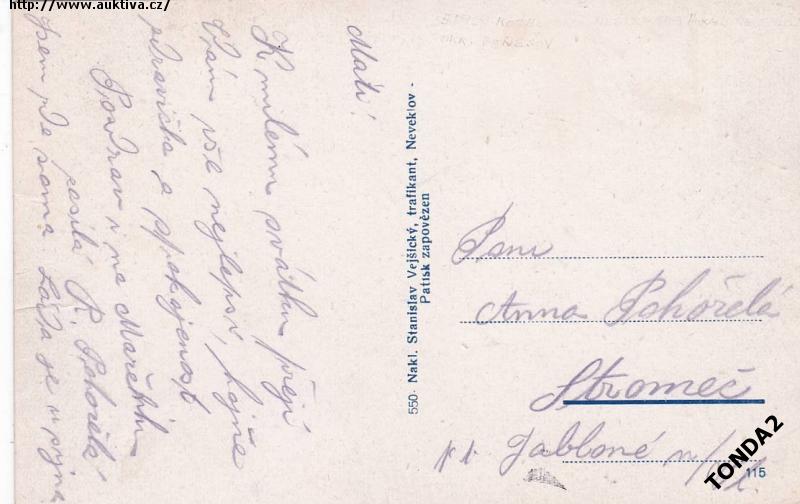 http://www.auktiva.cz/
Máti!
K milému svátku přeji
Vám vše nejlepší, hojně
zdravíčka a spokojenost
Pozdrav i na Mařenku
posílá R. Pohořelá
jsem zde sama Láďa je v
550· Nakl. Stanislav Vejšický, trafikant, Neveklov -
Patisk zapovězen
Paní
Anna Pohořelá
Stromeč
p. Jablonné n/
115
TONDA2